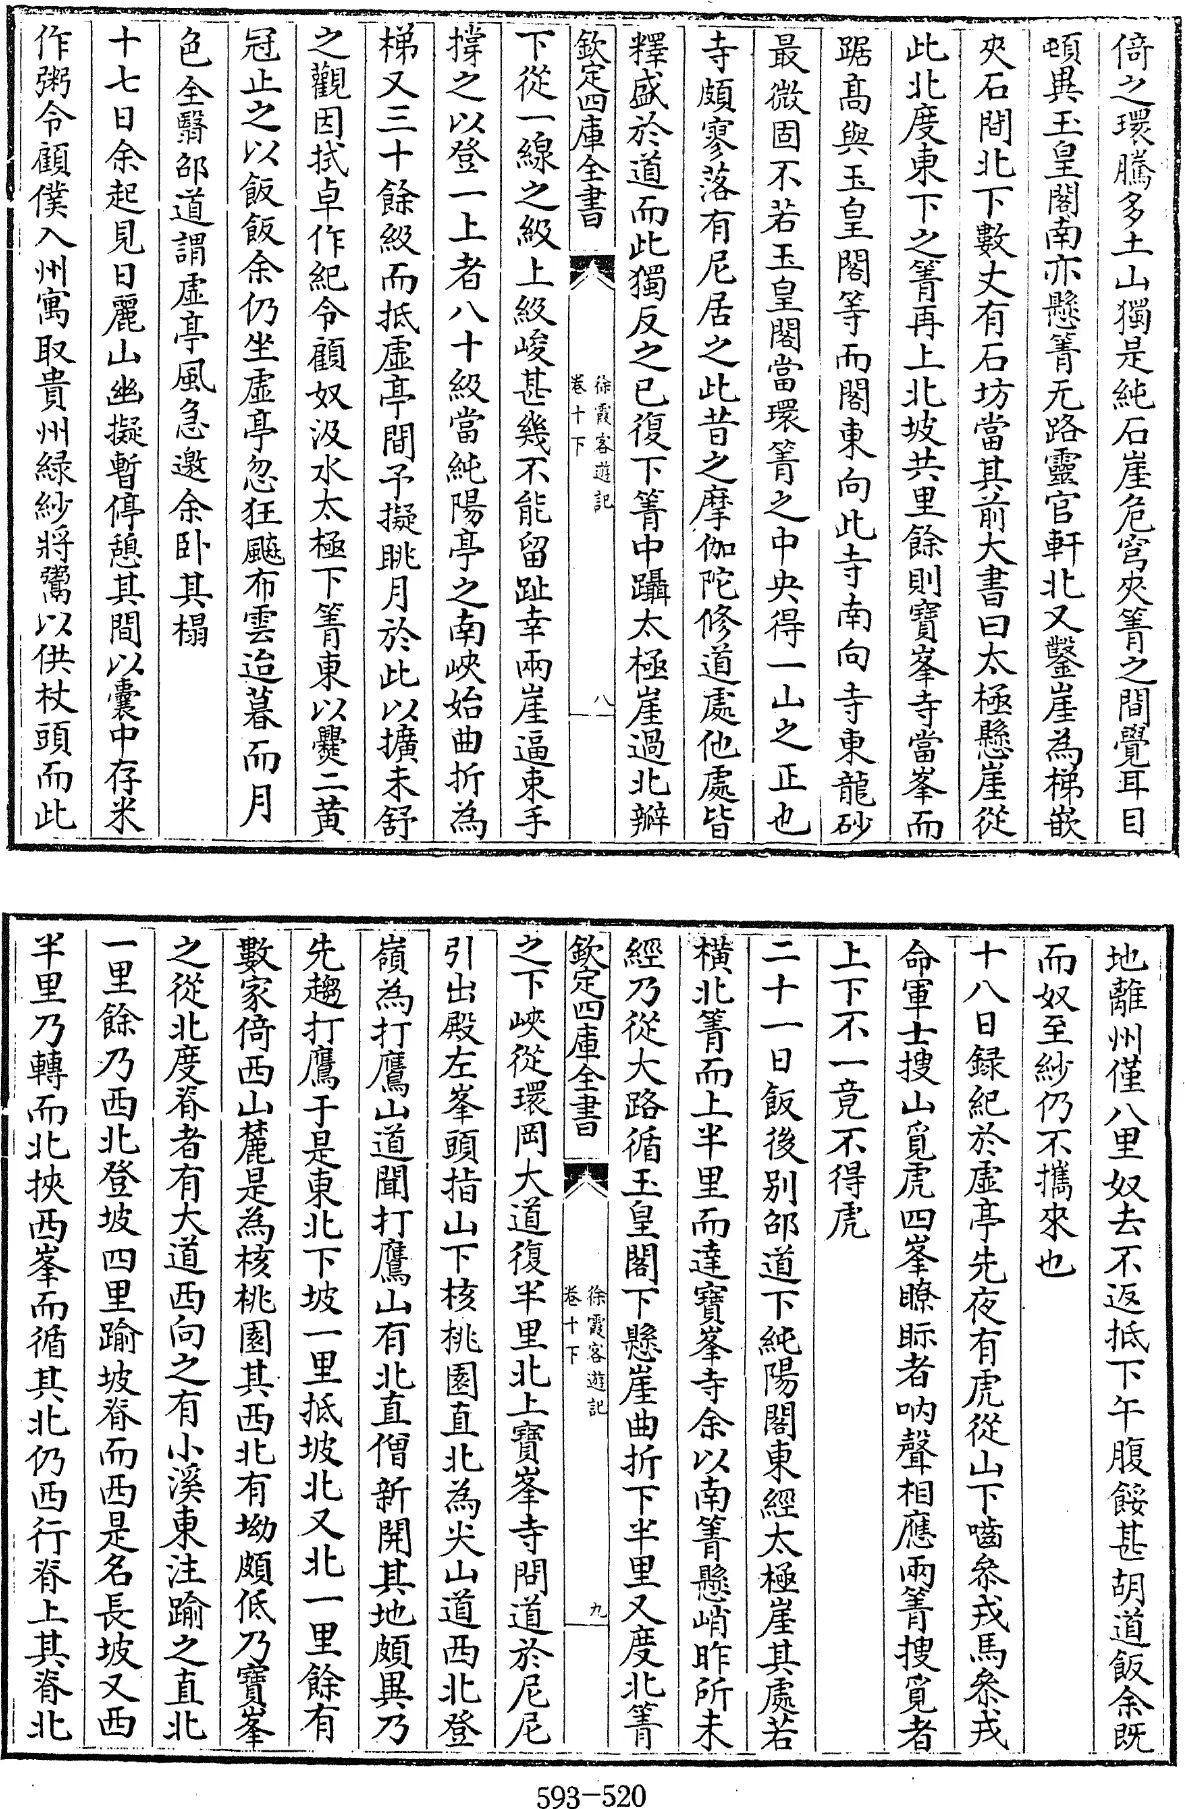 倚之環騰多土山獨是純石崖危穹夾箐之間覺耳目
頓異玉皇閣南亦懸箐无路靈官軒北又鑿崖為梯嵌
夾石間北下數丈有石坊當其前大書曰太極懸崖從
此北度東下之箐再上北坡共里餘則寶峯寺當峯而
踞髙與玉皇閣等而閣東向此寺南向寺東龍砂
最微固不若玉皇閣當環箐之中央得一山之正也
寺頗寥落有尼居之此昔之摩伽陀修道處他處皆
釋盛於道而此獨反之已復下箐中躡太極崖過北瓣
欽定四庫全書
徐霞客遊記
卷十下
八
下從一線之級上級峻甚幾不能留趾幸兩崖逼束手
撐之以登一上者八十級當純陽亭之南峽始曲折為
梯又三十餘級而抵虛亭間予擬眺月於此以擴未舒
之觀因拭卓作紀令顧奴汲水太極下箐東以爨二黄
冠止之以飯飯余仍坐虛亭忽狂飈布雲迨暮而月
色全翳邵道謂虛亭風急邀余卧其榻
十七日余起見日麗山幽擬暫停憩其間以囊中存米
作粥令顧僕入州寓取貴州緑紗將鬻以供杖頭而此
地離州僅八里奴去不返抵下午腹餒甚胡道飯余既
而奴至紗仍不攜來也
十八日録紀於虛亭先夜有虎從山下嚙叅戎馬叅戎
命軍士搜山覓虎四峯瞭眎者呐聲相應兩箐搜覓者
上下不一竟不得虎
二十一日飯後别邵道下純陽閣東經太極崖其處若
横北箐而上半里而達寶峯寺余以南箐懸峭昨所未
經乃從大路循玉皇閣下懸崖曲折下半里又度北箐
欽定四庫全書
徐霞客遊記
卷十下
九
之下峽從環岡大道復半里北上寶峯寺問道於尼尼
引出殿左峯頭指山下核桃園直北為尖山道西北登
嶺為打鷹山道聞打鷹山有北直僧新開其地頗異乃
先趨打鷹于是東北下坡一里抵坡北又北一里餘有
數家倚西山麓是為核桃園其西北有坳頗低乃寶峯
之從北度脊者有大道西向之有小溪東注踰之直北
一里餘乃西北登坡四里踰坡脊而西是名長坡又西
半里乃轉而北挾西峯而循其北仍西行脊上其脊北
593-520